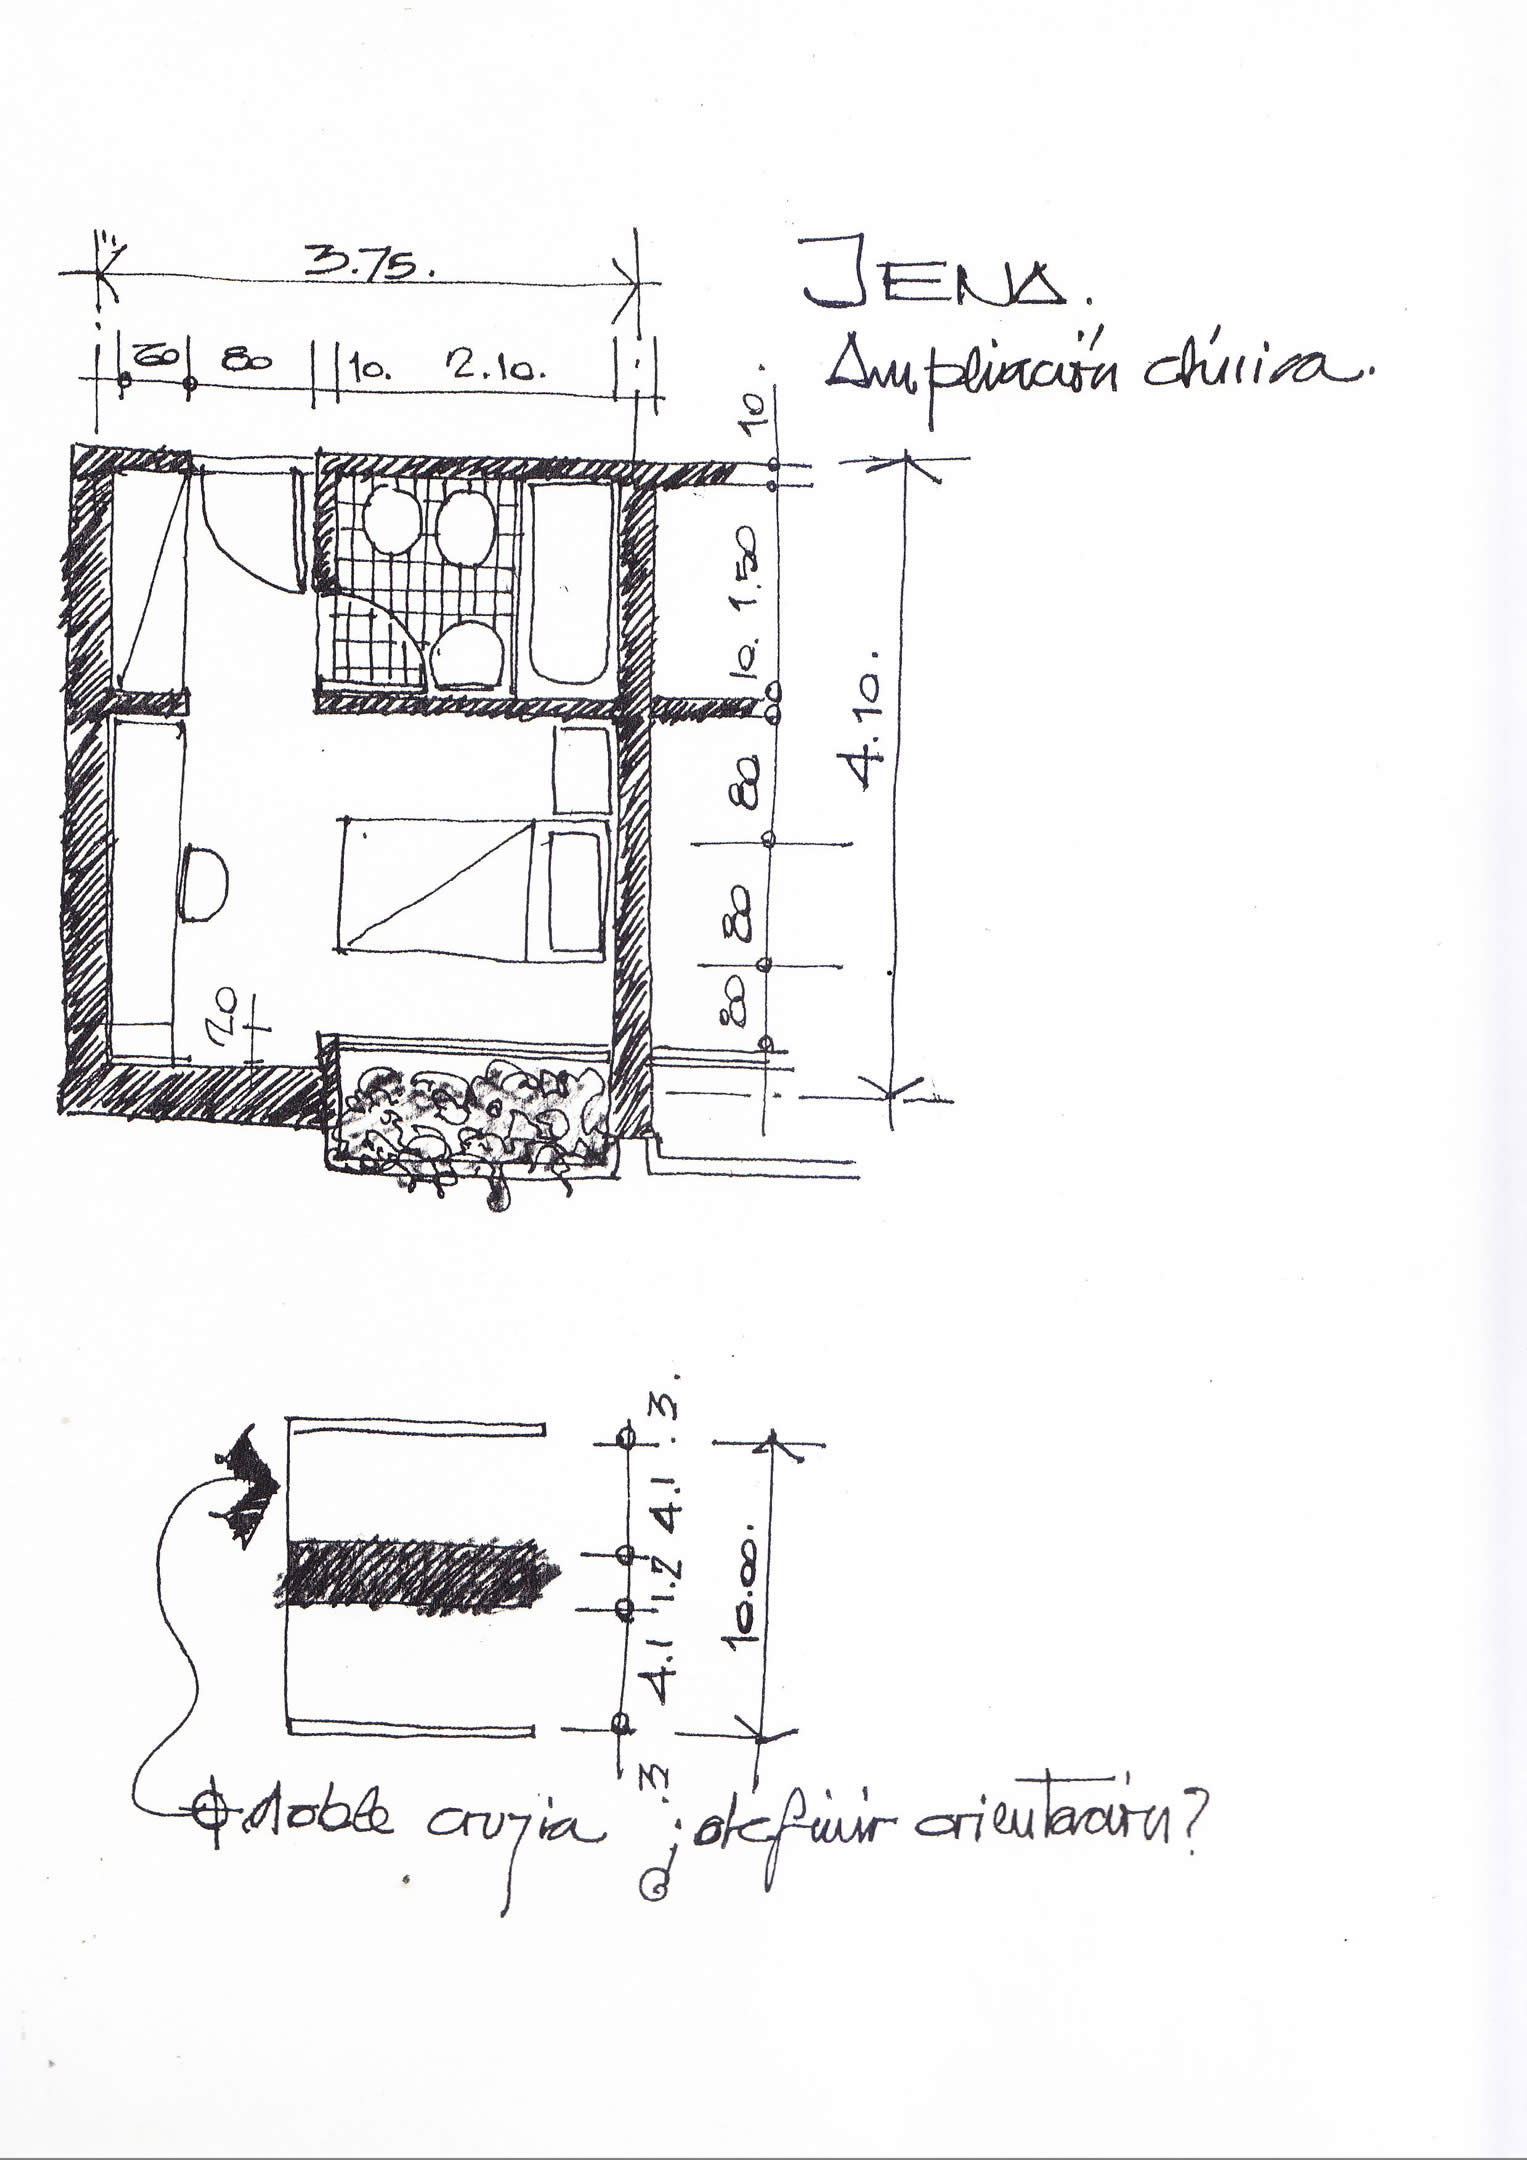 3.75.
JENA.
Ampliación clínica.
60 80 10. 2.10.
10.
1.50
10.
4.10.
80
80
80
20
.3.
4.1
1.2
10.00.
4.1
.3
doble crujia ¿definir orientación?